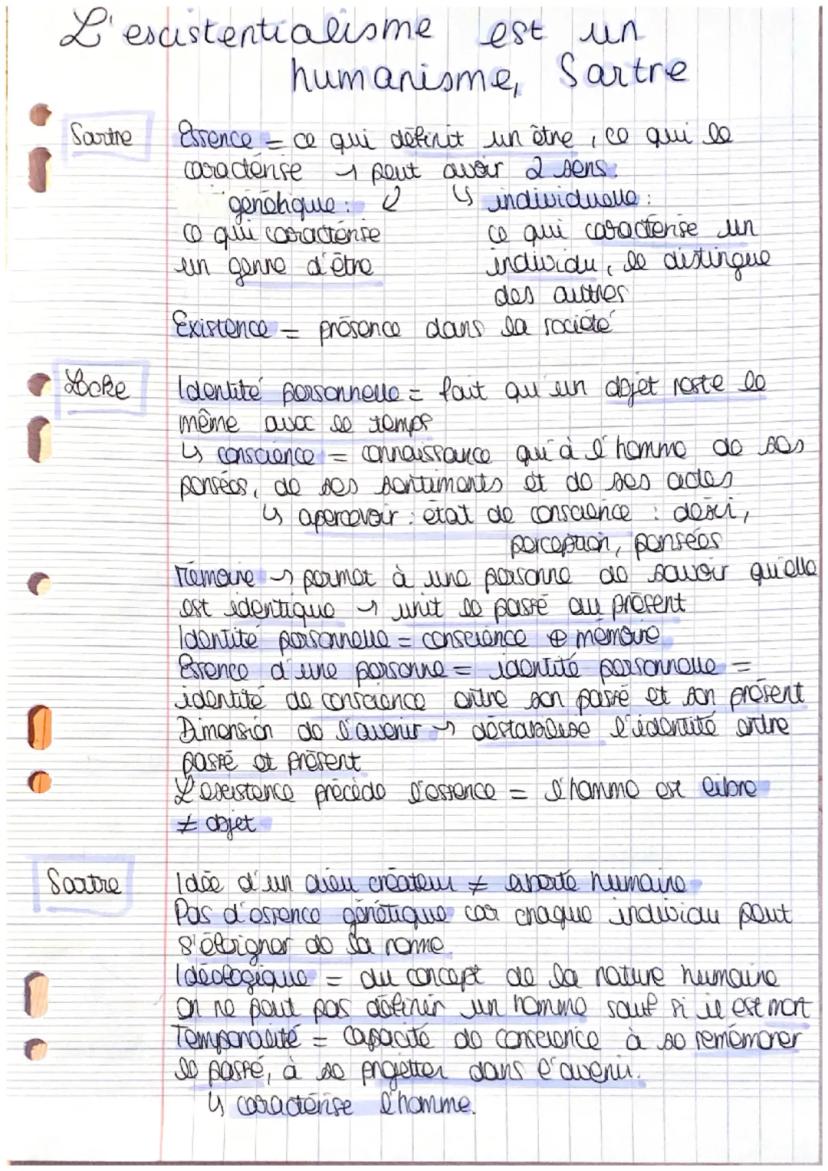 L'existentialisme est un
humanisme, Sartre
Sartre
Essence = ce qui définit un être, ce qui le
caractérise → peut avoir 2 sens:
génétique: ↙ ↳ individuelle:
ce qui caractérise ce qui caractérise un
un genre d'être individu, le distingue
des autres
Existence = présence dans la société
Locke
Identité personnelle = fait qu'un objet reste le
même avec le temps
↳ conscience = connaissance qu'à l'homme de ses
pensées, de ses sentiments et de ses actes
↳ apercevoir : état de conscience : désir,
perception, pensées
Mémoire → permet à une personne de savoir qu'elle
est identique → unit le passé au présent
Identité personnelle = conscience ⊕ mémoire
Essence d'une personne = identité personnelle =
identité de conscience entre son passé et son présent
Dimension de l'avenir → déstabilise l'identité entre
passé et présent
L'existence précède l'essence = l'homme est libre
≠ objet
Sartre
Idée d'un dieu créateur ≠ liberté humaine
Pas d'essence génétique car chaque individu peut
s'éloigner de sa norme
Idéologique = du concept de la nature humaine
on ne peut pas définir un homme sauf si il est mort
Temporalité = capacité de conscience à se remémorer
le passé, à se projetter dans l'avenir.
↳ caractérise l'homme.